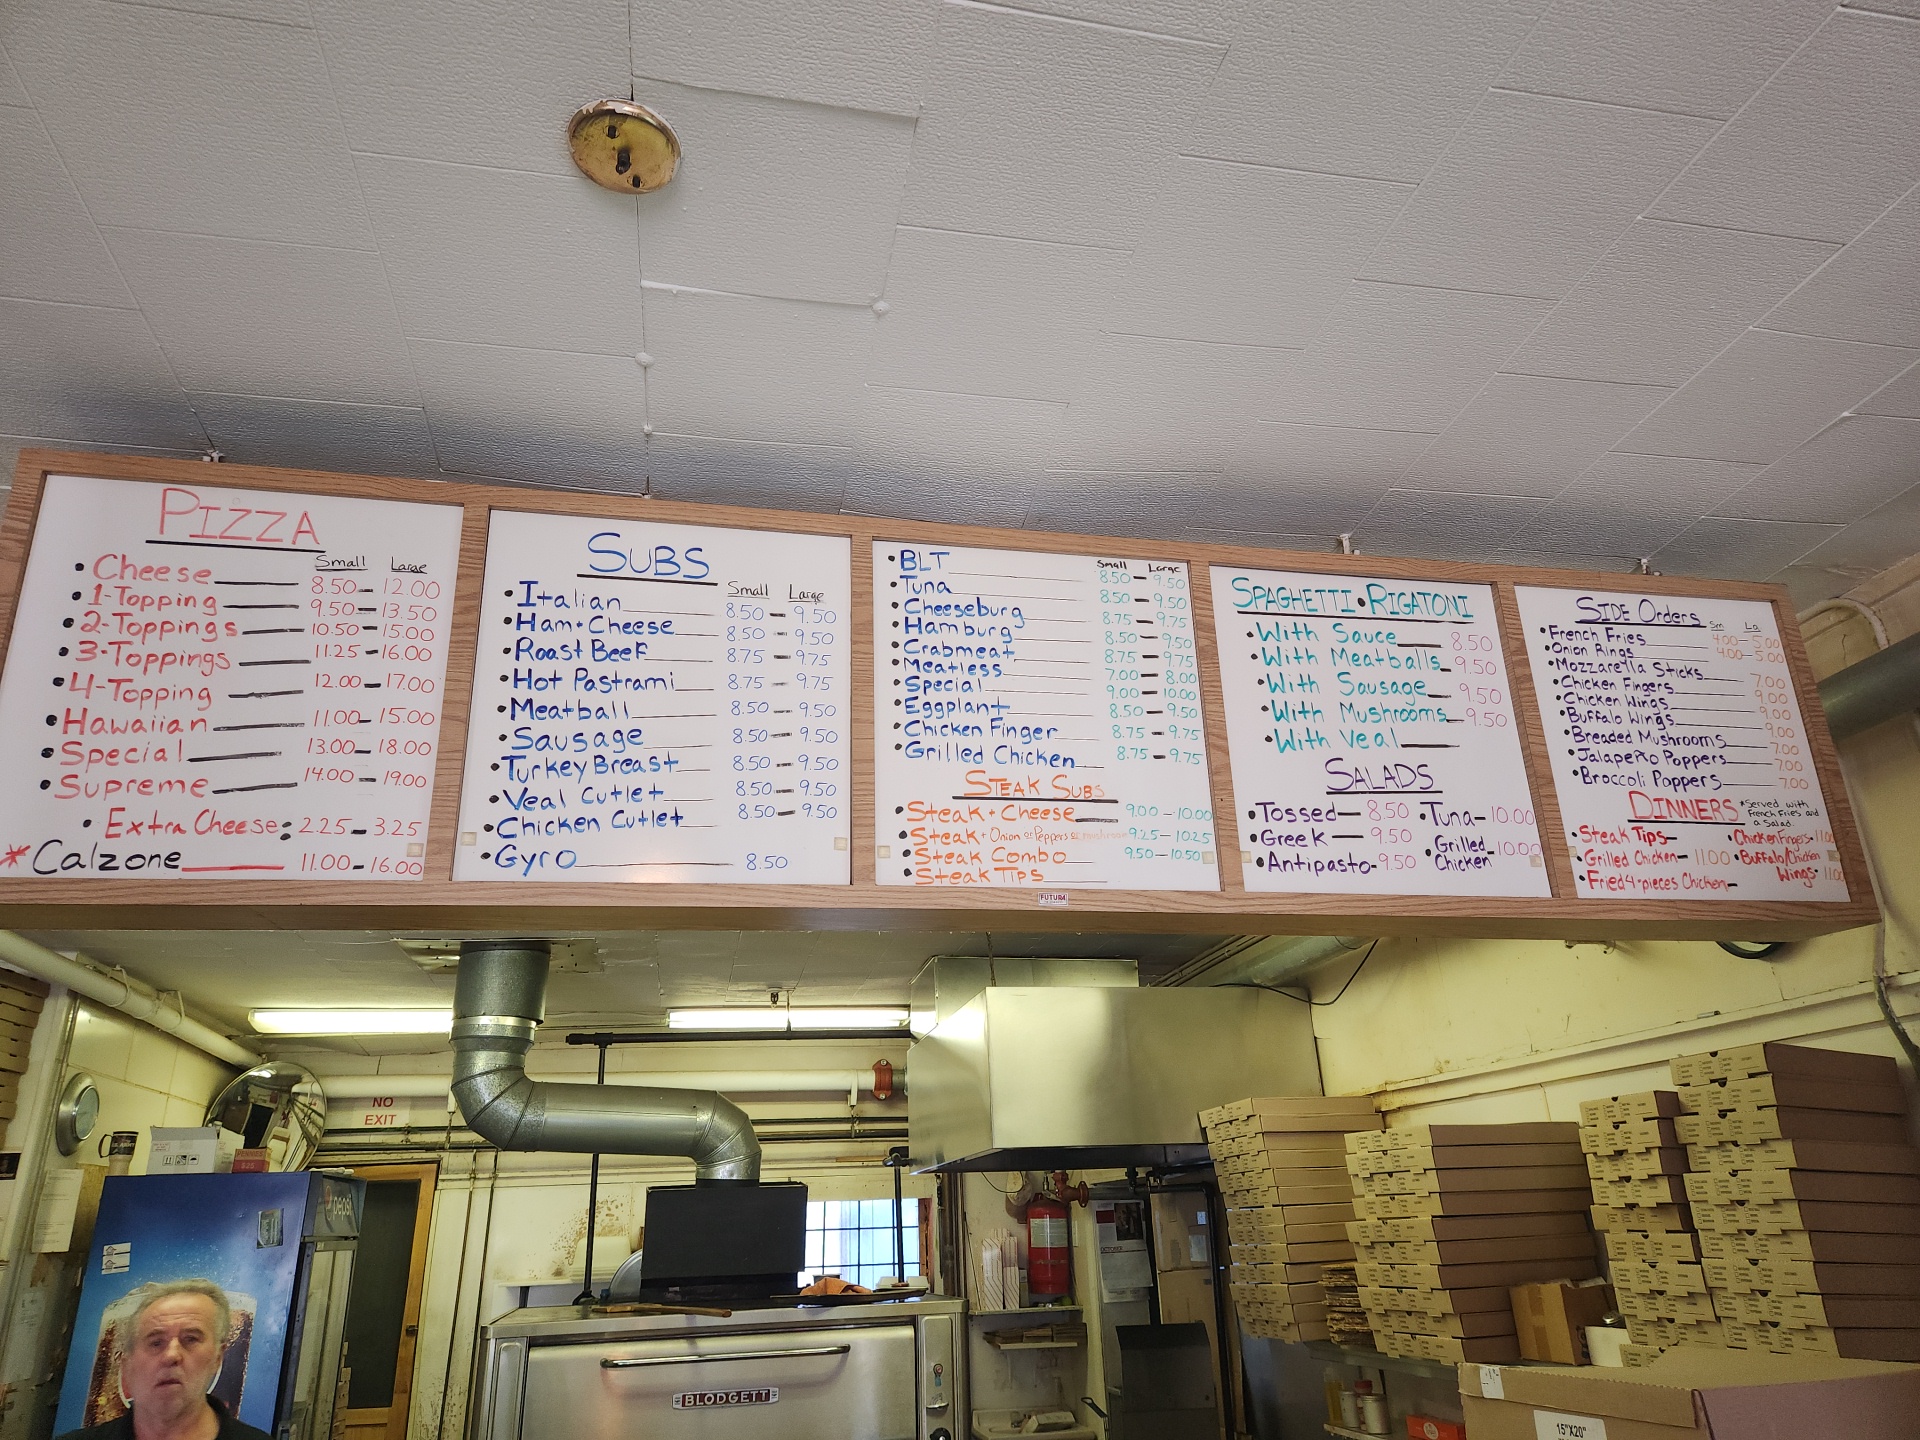 PIZZA
Small Large
• Cheese 8.50 - 12.00
• 1-Topping 9.50 - 13.50
• 2-Toppings 10.50 - 15.00
• 3-Toppings 11.25 - 16.00
• 4-Topping 12.00 - 17.00
• Hawaiian 11.00 - 15.00
• Special 13.00 - 18.00
• Supreme 14.00 - 19.00
• Extra Cheese: 2.25 - 3.25
* Calzone 11.00 - 16.00
SUBS
Small Large
• Italian 8.50 - 9.50
• Ham + Cheese 8.50 - 9.50
• Roast Beef 8.75 - 9.75
• Hot Pastrami 8.75 - 9.75
• Meatball 8.50 - 9.50
• Sausage 8.50 - 9.50
• Turkey Breast 8.50 - 9.50
• Veal Cutlet 8.50 - 9.50
• Chicken Cutlet 8.50 - 9.50
• Gyro 8.50
Small Large
• BLT 8.50 - 9.50
• Tuna 8.50 - 9.50
• Cheeseburg 8.75 - 9.75
• Hamburg 8.50 - 9.50
• Crabmeat 8.75 - 9.75
• Meatless 7.00 - 8.00
• Special 9.00 - 10.00
• Eggplant 8.50 - 9.50
• Chicken Finger 8.75 - 9.75
• Grilled Chicken 8.75 - 9.75
STEAK SUBS
• Steak + Cheese 9.00 - 10.00
• Steak + Onion or Peppers or mushroom 9.25 - 10.25
• Steak Combo 9.50 - 10.50
• Steak TIPS
SPAGHETTI • RIGATONI
• With Sauce 8.50
• With Meatballs 9.50
• With Sausage 9.50
• With Mushrooms 9.50
• With Veal
SALADS
• Tossed - 8.50
• Greek - 9.50
• Antipasto - 9.50
• Tuna - 10.00
• Grilled Chicken - 10.00
SIDE Orders
Sm La
• French Fries 4.00 - 5.00
• Onion Rings 4.00 - 5.00
• Mozzarella Sticks 7.00
• Chicken Fingers 9.00
• Chicken Wings 9.00
• Buffalo Wings 9.00
• Breaded Mushrooms 7.00
• Jalapeño Poppers 7.00
• Broccoli Poppers 7.00
DINNERS
*Served with
French Fries and
a Salad
• Steak Tips -
• Grilled Chicken - 11.00
• Fried 4-pieces Chicken -
• Chicken Fingers - 11.00
• Buffalo/Chicken
Wings - 11.00
FUTURA
NO
EXIT
pepsi
BLODGETT
15"X20"